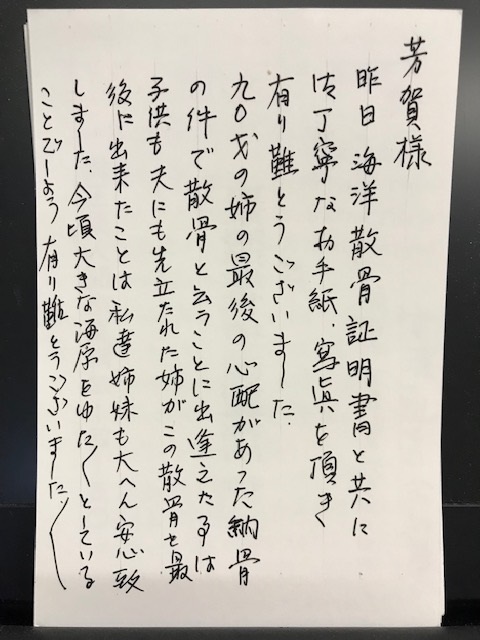 芳賀様
昨日 海洋散骨証明書と共に
御丁寧なお手紙、寫眞を頂き
有り難とうございました。
九〇才の姉の最後の心配があった納骨
の件で散骨と云うことに出逢えたるは
子供も夫にも先立たれた姉がこの散骨を最
後に出来たことは私達姉妹も大へん安心致
しました。今頃大きな海原をゆた〱としている
ことでしょう 有り難とうございました